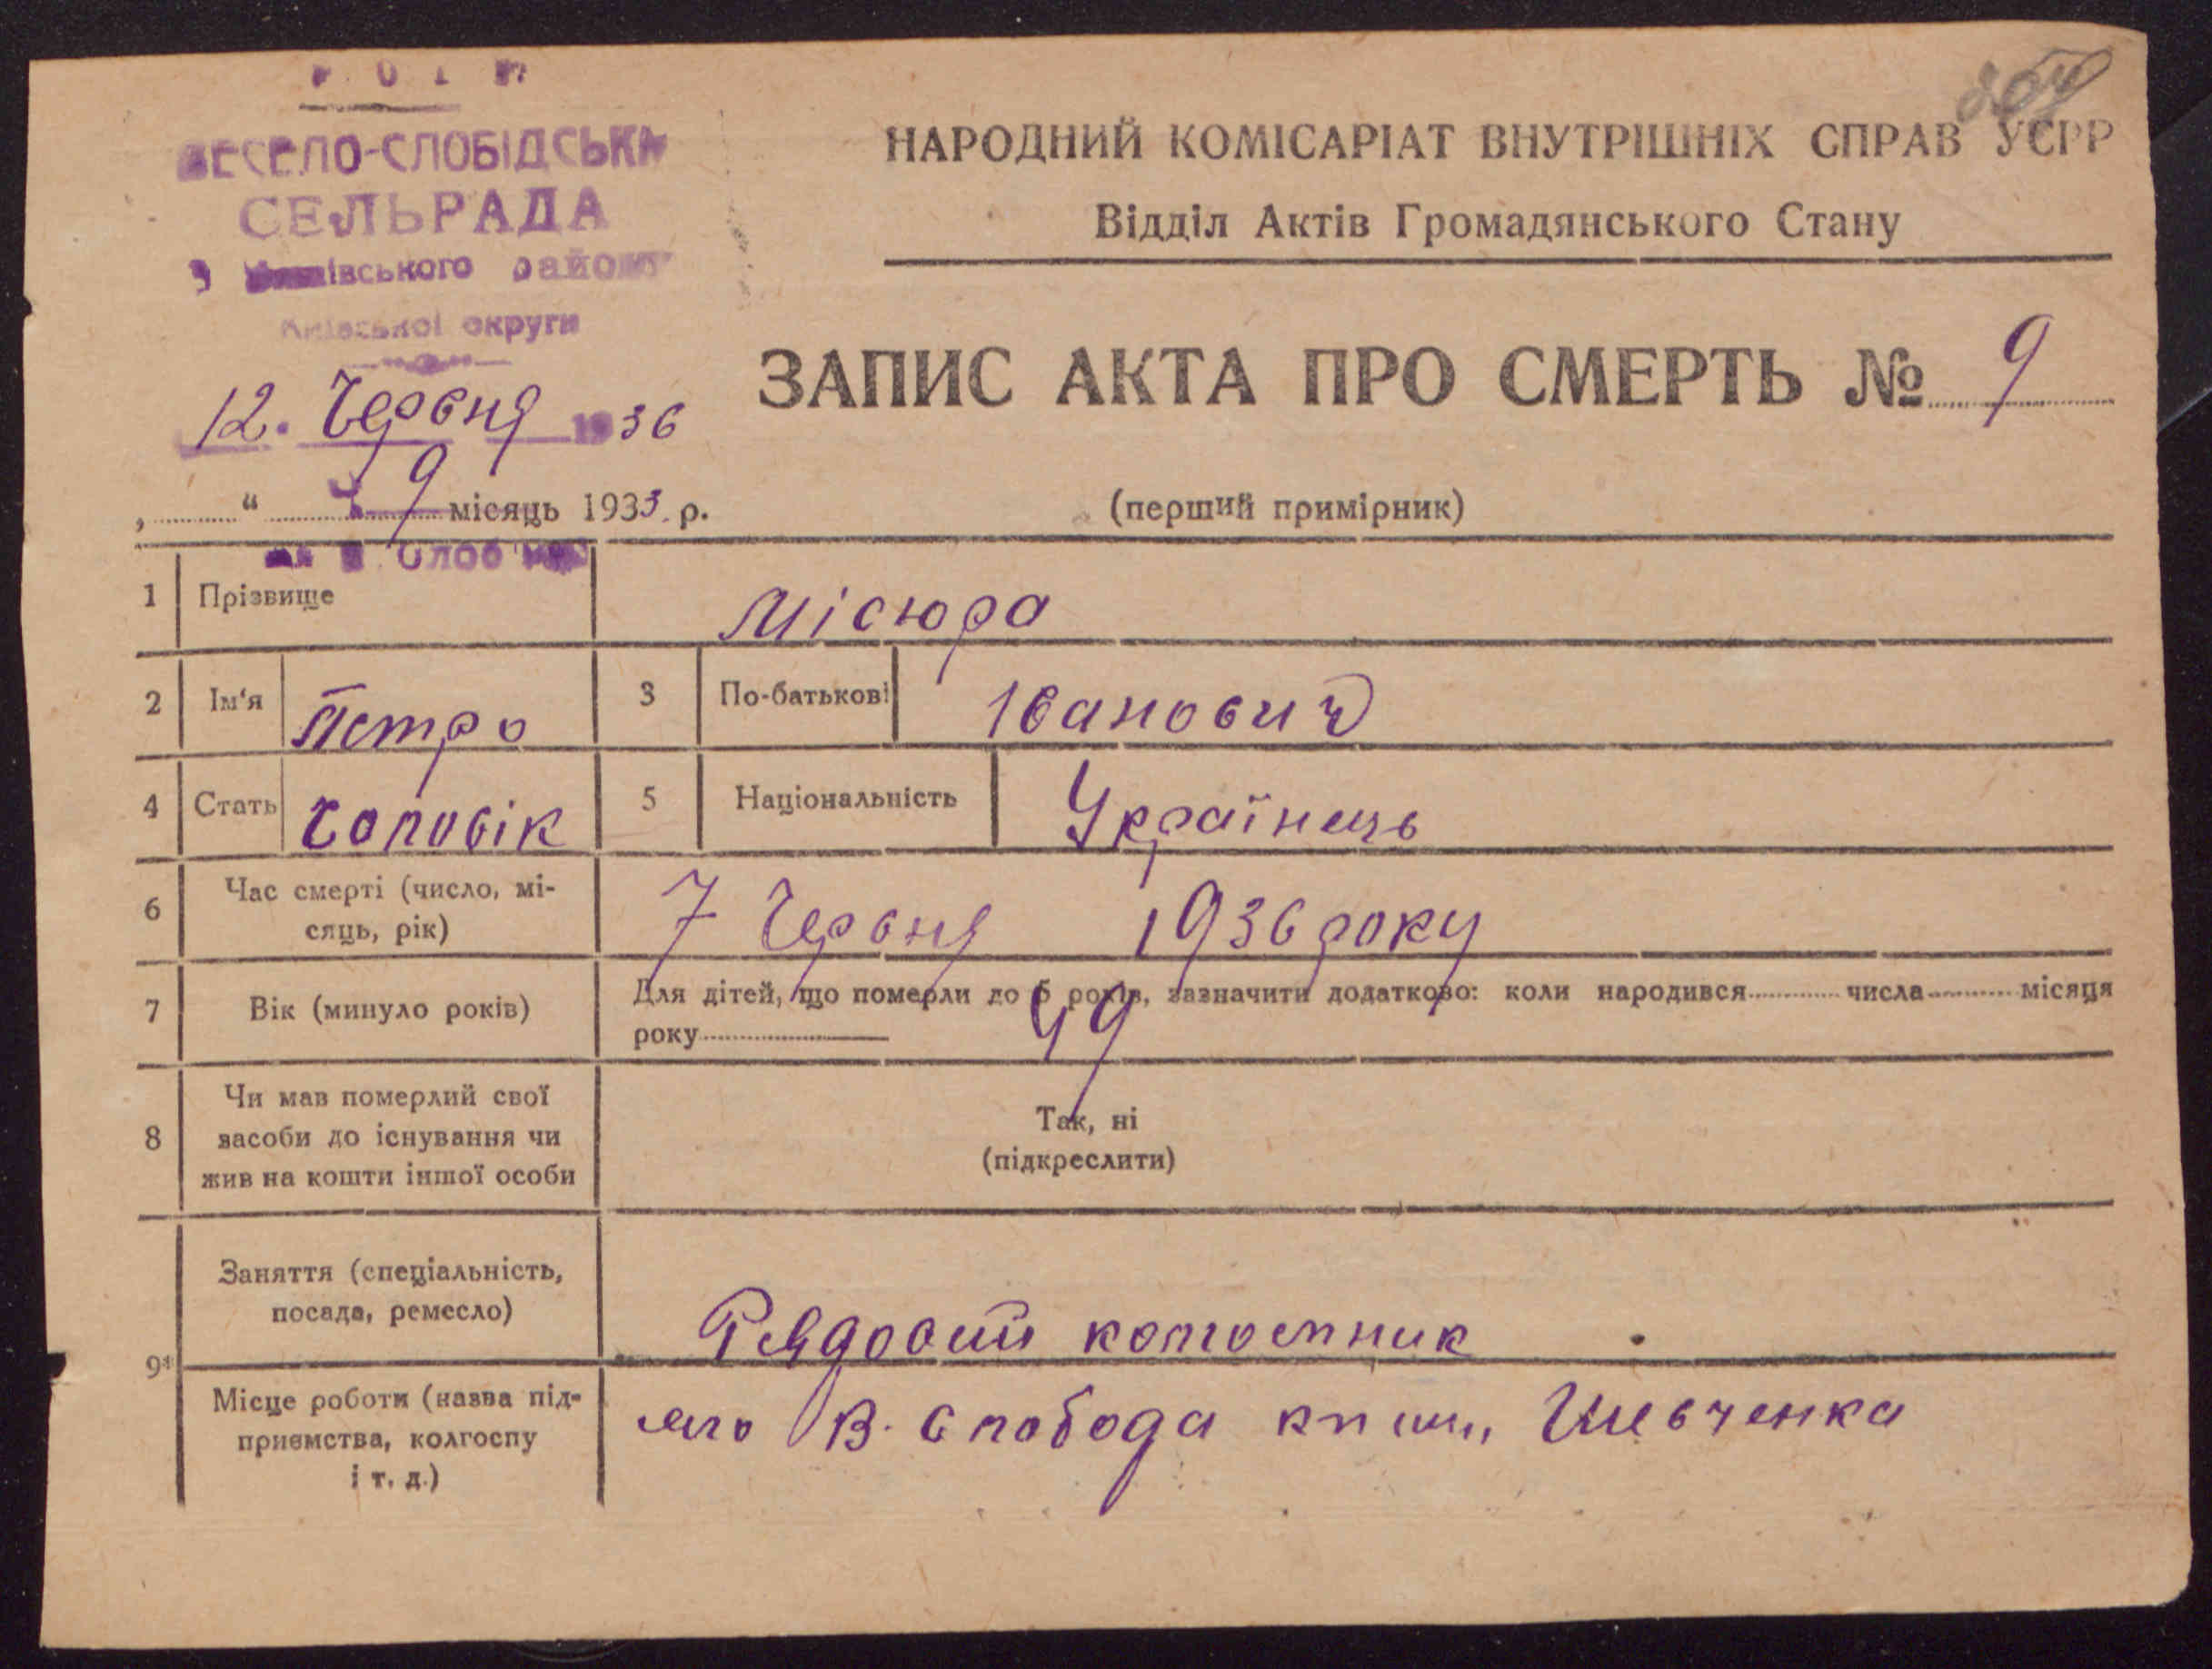 ВЕСЕЛО-СЛОБІДСЬКА
СЕЛЬРАДА
району
Київської округи
12. Червня 1936
„ “ 9 місяць 1933 р.
НАРОДНИЙ КОМІСАРІАТ ВНУТРІШНІХ СПРАВ УСРР
Відділ Актів Громадянського Стану
ЗАПИС АКТА ПРО СМЕРТЬ № 9
(перший примірник)
1 Прізвище Місюра
2 Ім'я Петро 3 По-батькові Іванович
4 Стать Чоловік 5 Національність Українець
6 Час смерті (число, мі-
сяць, рік) 7 Червня 1936 року
7 Вік (минуло років) Для дітей, що померли до 5 років, зазначити додатково: коли народився числа місяця
року 49
8 Чи мав померлий свої
засоби до існування чи
жив на кошти іншої особи
Так, ні
(підкреслити)
9 Заняття (спеціальність,
посада, ремесло) Рядовий колгоспник
Місце роботи (назва під-
приємства, колгоспу
і т. д.)
В. Слобода Шевченка